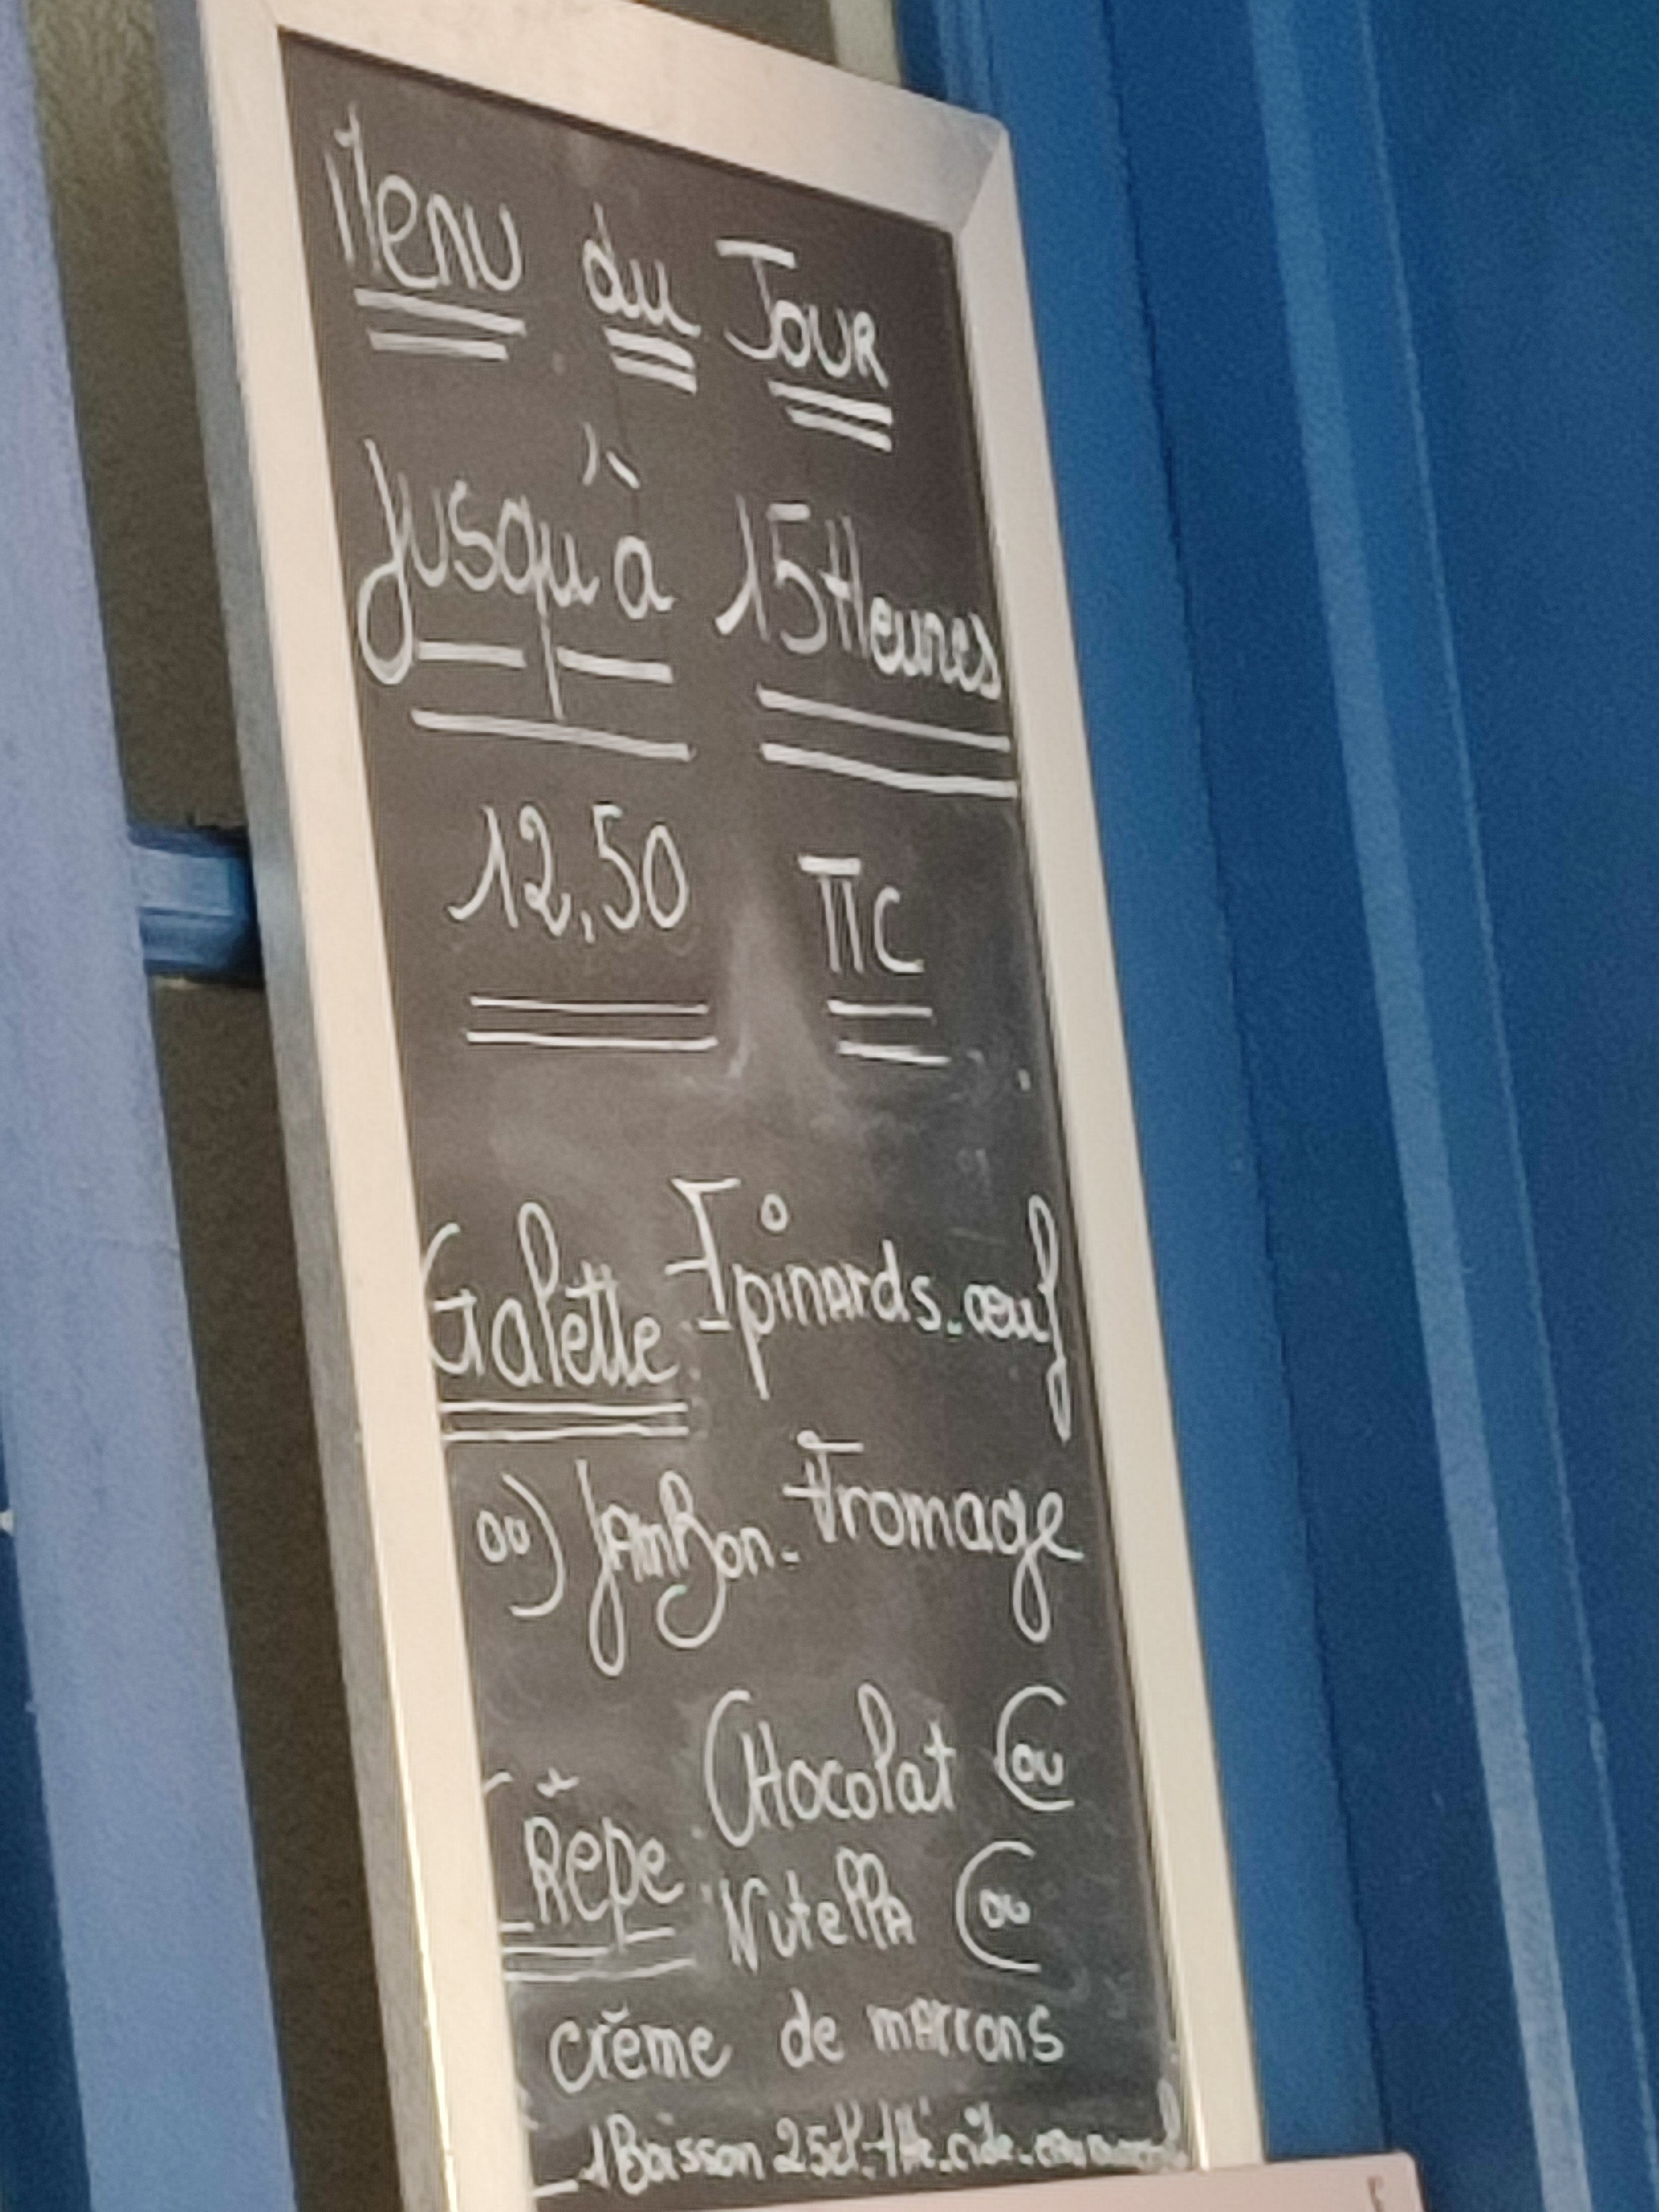 Menu du Jour
Jusqu'à 15Heures
12,50 TTC
Galette Epinards-œuf
ou) Jambon-Fromage
Crêpe Chocolat (ou
Nutella (ou
crème de marrons
1 Boisson 25cl. thé. cidre.